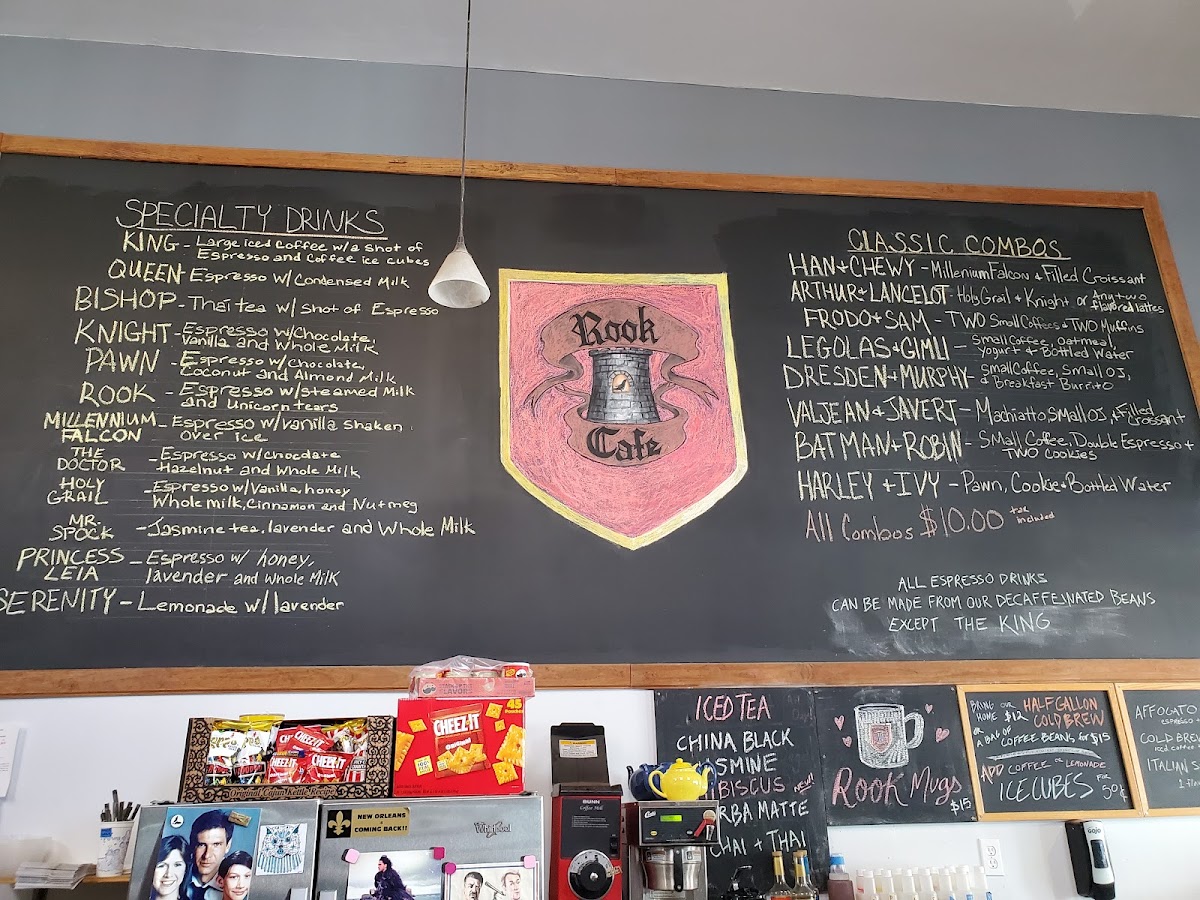 SPECIALTY DRINKS
KING - Large iced coffee w/a shot of
Espresso and Coffee ice cubes
QUEEN - Espresso w/ Condensed Milk
BISHOP - Thai tea w/ shot of Espresso
KNIGHT - Espresso w/Chocolate,
Vanilla and Whole Milk
PAWN - Espresso w/Chocolate,
Coconut and Almond Milk
ROOK - Espresso w/steamed Milk
and Unicorn tears
MILLENNIUM
FALCON - Espresso w/vanilla shaken
over ice
THE
DOCTOR - Espresso w/Chocolate
Hazelnut and Whole Milk
HOLY
GRAIL - Espresso w/Vanilla, honey
Whole milk, Cinnamon and Nutmeg
MR.
SPOCK - Jasmine tea, lavender and Whole Milk
PRINCESS
LEIA - Espresso w/ honey,
lavender and Whole Milk
SERENITY - Lemonade w/ lavender
Rook
Cafe
CLASSIC COMBOS
HAN + CHEWY - Millenium Falcon + Filled Croissant
ARTHUR + LANCELOT - Holy Grail + Knight or Any two
flavored lattes
FRODO + SAM - TWO Small Coffees + TWO Muffins
LEGOLAS + GIMLI - Small Coffee, Oatmeal,
Yogurt + Bottled Water
DRESDEN + MURPHY - Small Coffee, Small OJ,
+ Breakfast Burrito
VALJEAN + JAVERT - Machiatto, Small OJ, + Filled
Croissant
BATMAN + ROBIN - Small Coffee, Double Espresso +
TWO Cookies
HARLEY + IVY - Pawn, Cookie + Bottled Water
All Combos $10.00 tax
included
ALL ESPRESSO DRINKS
CAN BE MADE FROM OUR DECAFFEINATED BEANS
EXCEPT THE KING
ICED TEA
CHINA BLACK
HIBISCUS new!
MATTE
CHAI + THAI
Rook Mugs
$15
BRING OUR HALF GALLON
HOME $12 COLD BREW
OR A BAG OF
COFFEE BEANS for $15
ADD COFFEE OR LEMONADE
ICE CUBES FOR
50¢
AFFOGATO
ESPRESSO
COLD BREW
ITALIAN
Original Cajun Kettle Recipe
CHEEZ-IT
CHEEZ-IT
CHEEZ-IT
45
NEW ORLEANS
COMING BACK!!
Whirlpool
BUNN
Coffee Mill
GOJO